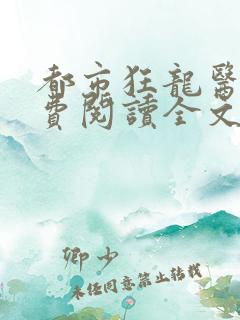 都市狂龍醫
費閱讀全文
卿少
未經同意禁止轉載